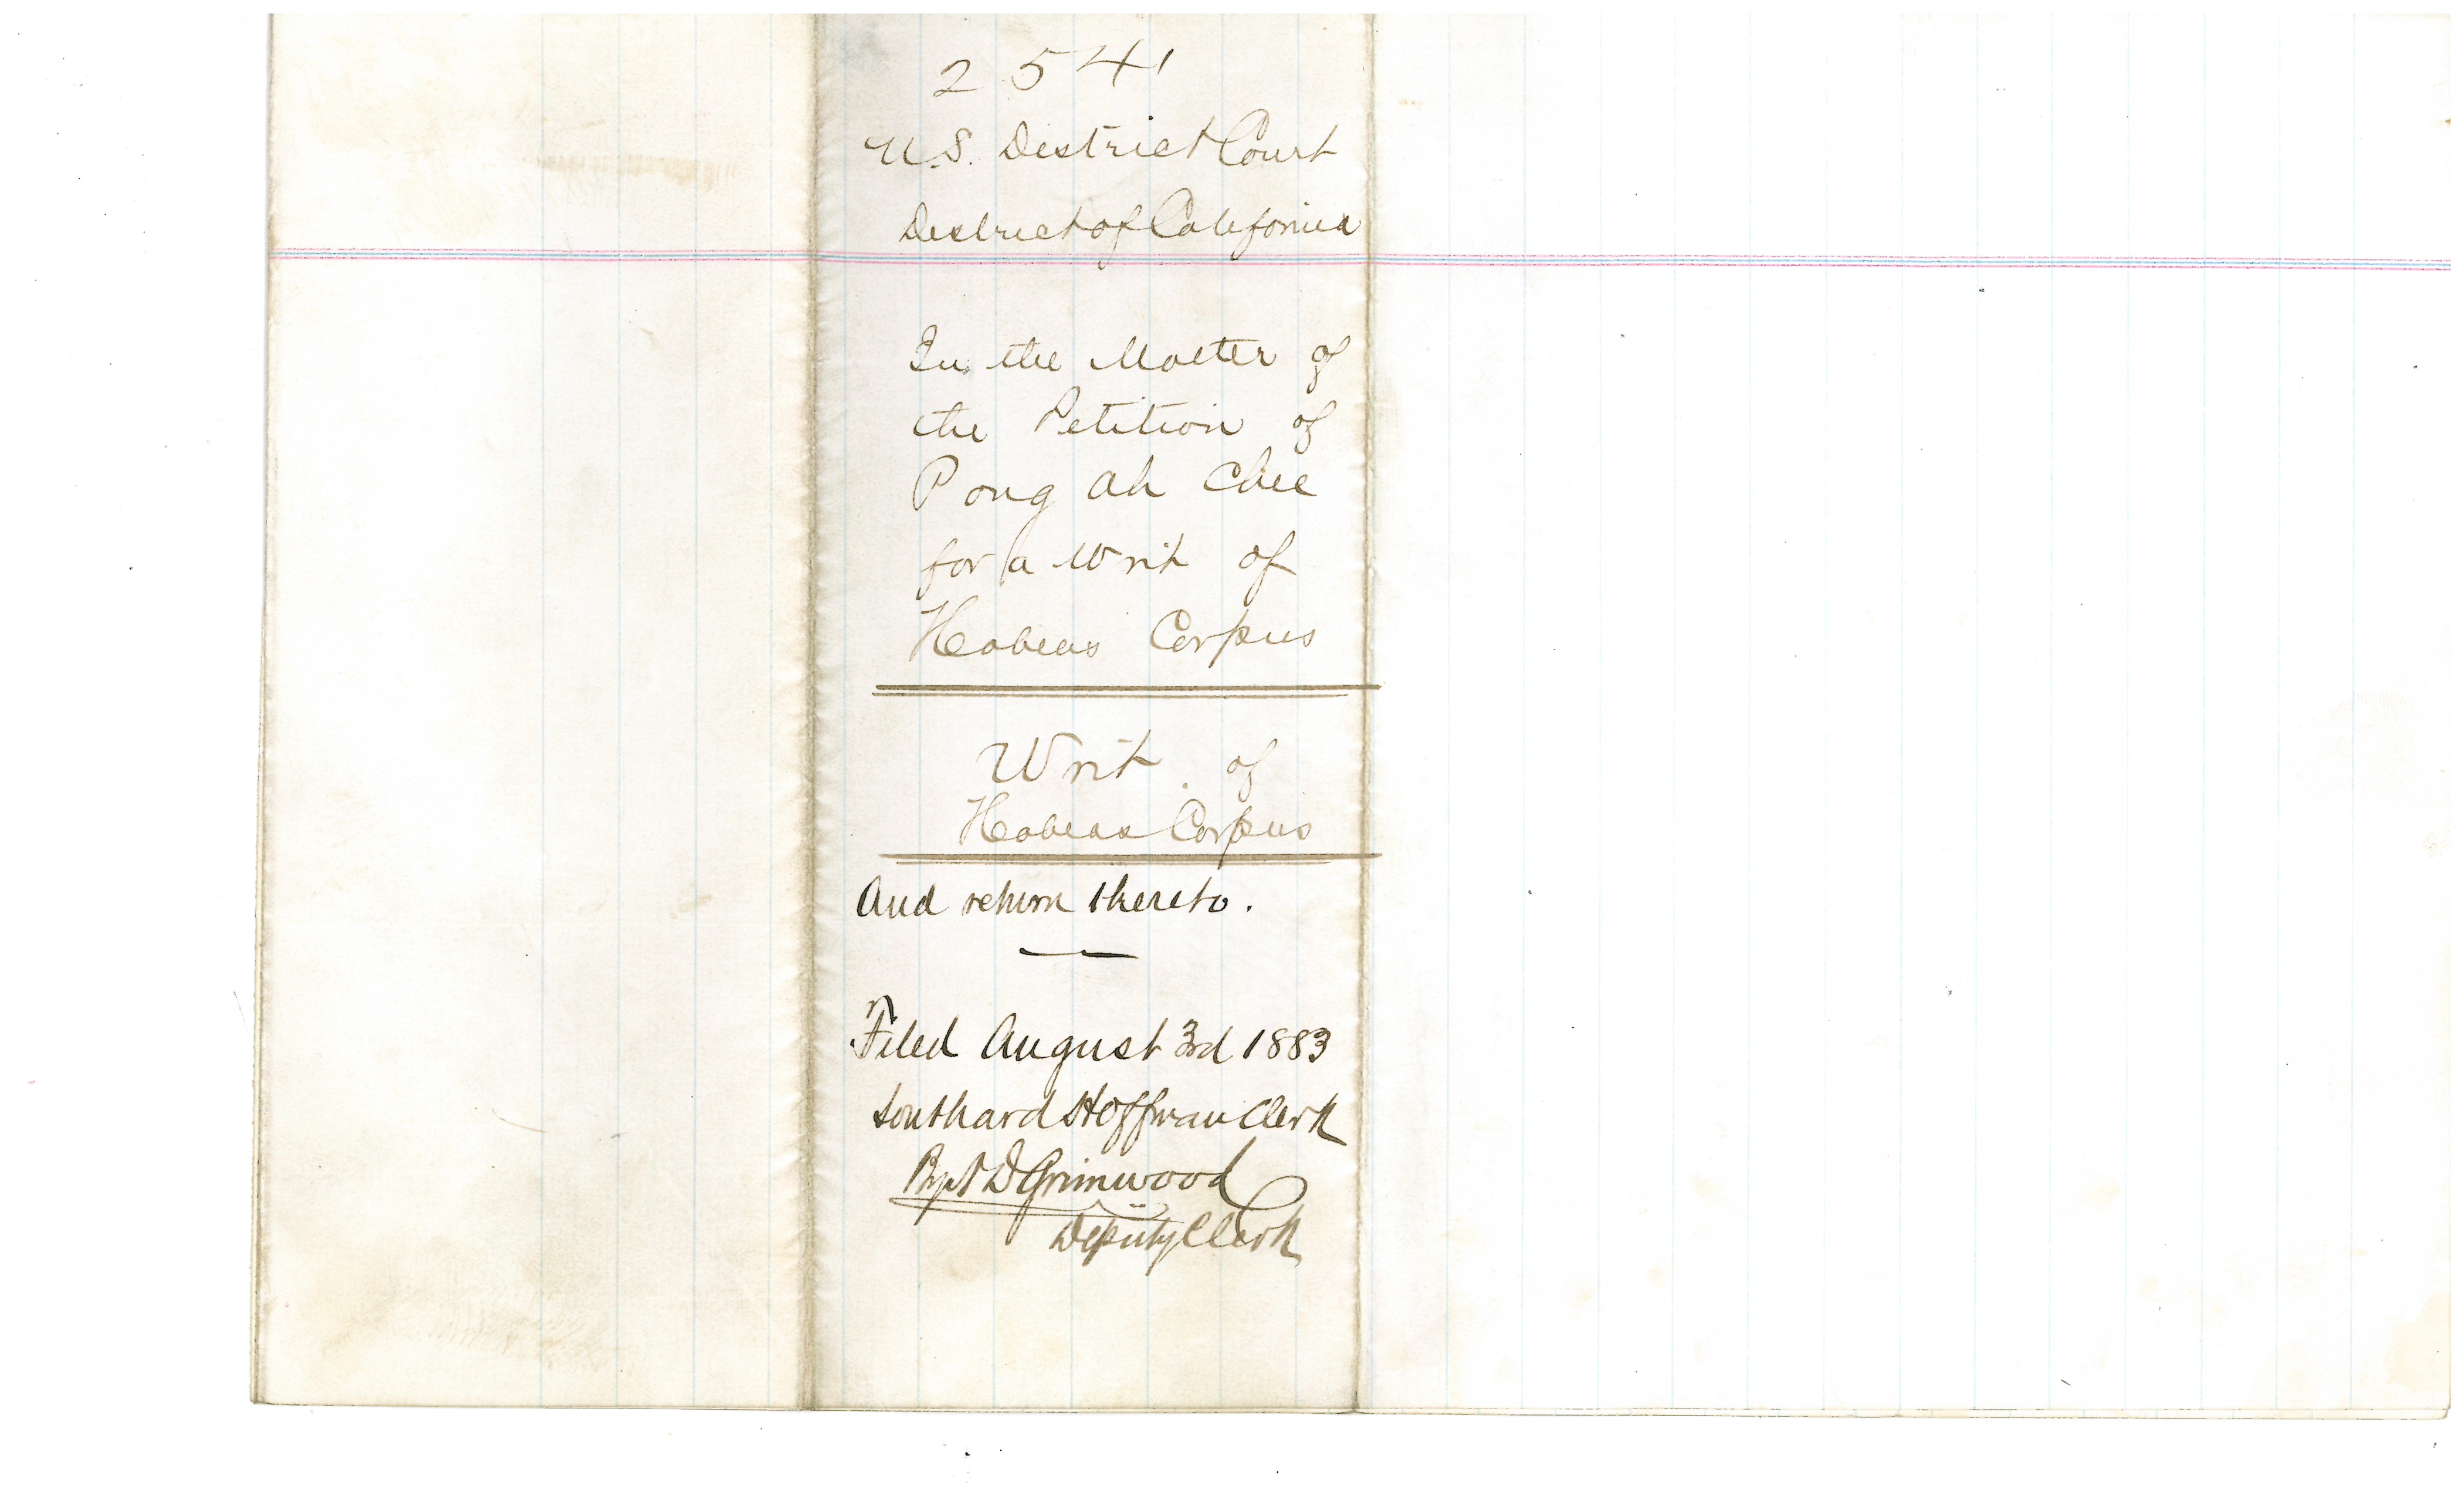 2541
U.S. District Court
District of California
In the Matter of
the Petition of
Pong Ah Chee
for a Writ of
Habeas Corpus
Writ of
Habeas Corpus
And return thereto.
Filed August 3rd 1883
Southard Hoffman Clerk
Grimwood
Deputy Clerk